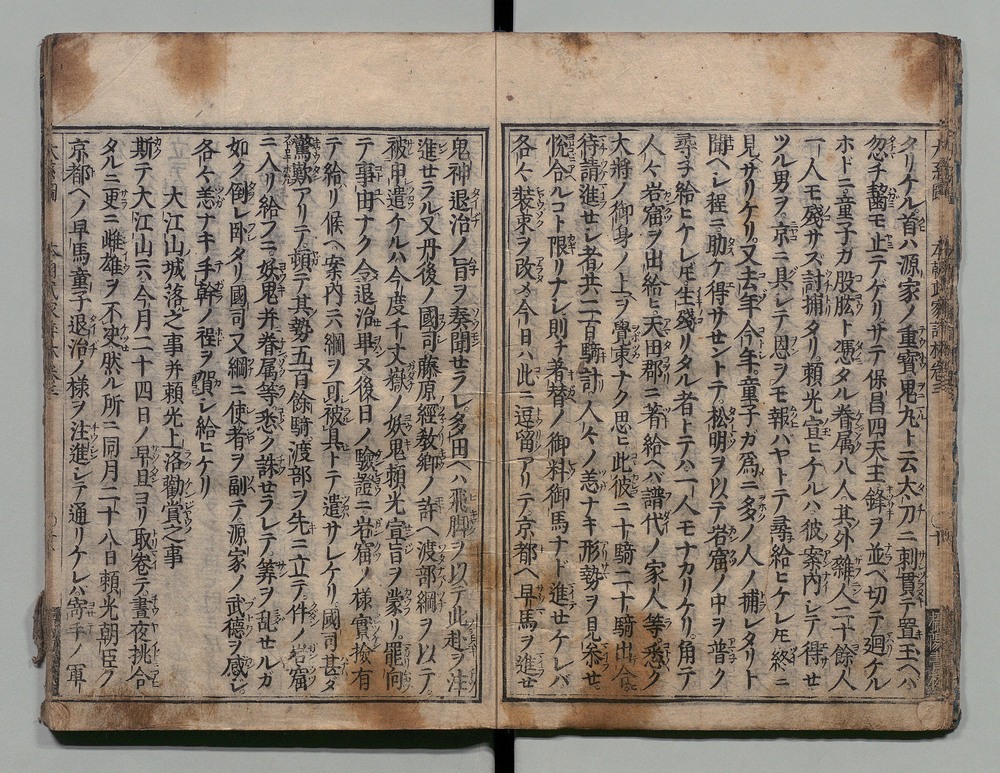 タリケル首ハ源家ノ重寶鬼丸ト云太刀ニ刺貫テ置玉ヘハ
忽チ齧モ止テゲリサテ保昌四天王鋒ヲ並ヘ切テ廻ケル
ホドニ童子ガ股肱ト憑タル眷属八人其外雜人二十餘人
一人モ殘サズ討捕タリ頼光宣ヒケルハ彼案内レテ得サセ
ツル男ヲ京ニ具レテ恩ヲモ報ハヤトテ尋給ヒケレ𪜈終ニ
見サリケリ又去年今年童子ガ爲ニ多ノ人ノ捕レタリト
聞ヘレ程ニ助ケ得サセントテ松明ヲ以テ岩窟ノ中ヲ普ク
尋子給ヒケレ𪜈生殘リタル者トテハ一人モナカリケリ角テ
人々岩窟ヲ出給ヒ天田郡ニ著給ヘハ譜代ノ家人等悉ク
大將ノ御身ノ上ヲ覺束ナク思ヒ此彼ニ十騎二十騎出合
待請進セレ者共二百騎計人々ノ恙ナキ形勢ヲ見奉セ
悦合ルコト限リナレ則チ着替ノ御料御馬ナド進セケレバ
各々裝束ヲ改メ今日ハ此ニ逗留アリテ京都ヘ早馬ヲ進セ
鬼神退治ノ旨ヲ奏聞セラレ多田ヘハ飛脚ヲ以テ此趣ヲ注
進セラル又丹後ノ國司藤原經教卿ノ許ヘ渡部綱ヲ以テ
被申遣ケルハ今度千丈嶽ノ妖鬼頼光宣旨ヲ蒙リ罷向
テ事由ナク令退治畢ヌ後日ノ驗證ニ岩窟ノ様實撿有
テ給リ候ヘ案内ニハ綱ヲ可被具トテ遣サレケリ國司甚タ
驚歎アリテ頓テ其勢五百餘騎渡部ヲ先ニ立テ件ノ岩窟
ニ入リ給フニ妖鬼并眷属等悉ク誅セラレテ筭ヲ乱セルガ
如ク倒レ卧タリ國司又綱ニ使者ヲ副テ源家ノ武德ヲ感レ
各々恙ナキ手幹ノ程ヲ賀レ給ヒケリ
大江山城落之事并頼光上洛勸賞之事
斯テ大江山ニハ今月二十四日ノ早旦ヨリ取巻テ晝夜挑合
タルニ更ニ雌雄ヲ不决然ル所ニ同月二十八日頼光朝臣ク
京都ヘノ早馬童子退治ノ様ヲ注進レテ通リケレハ寄手ノ軍